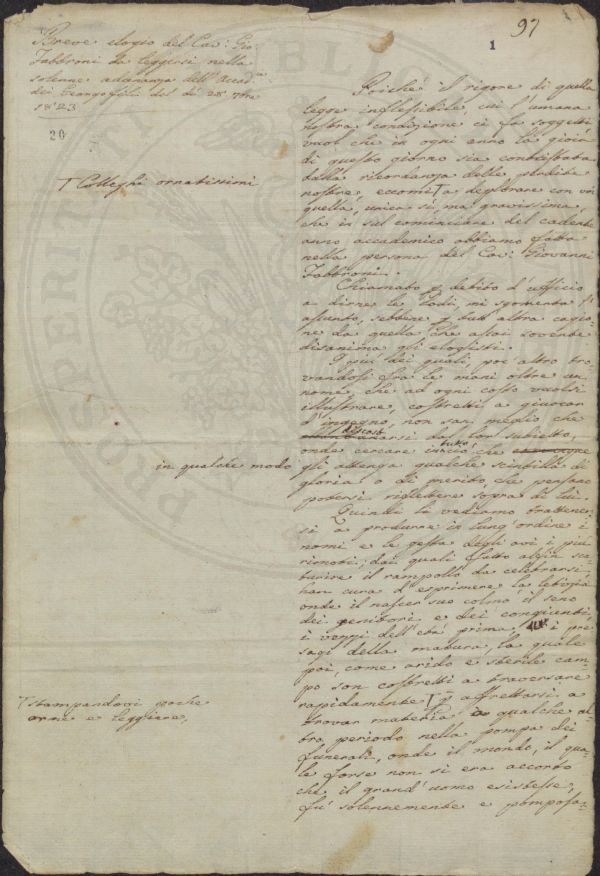 97
1
Breve elogio del Cav: Gio:
Fabbroni da leggersi nella
solenne adunanza dell'Accad.ia
dei Georgofili del dì 28. 7bre
1823
20
Poichè il rigore di quella
legge inflessibile, cui l'umana
nostra condizione ci fa soggetti,
vuol che in ogni anno la gioia
di questo giorno sia contristata
dalla ricordanza delle perdite
nostre, eccomi Ꞇ a deplorare con voi
quella, unica sì, ma gravissima,
che in sul cominciare del cadente
anno accademico abbiamo fatta
nella persona del Cav: Giovanni
Fabbroni.
Ꞇ Colleghi ornatissimi
Chiamato p debito d'ufficio
a dirne le lodi, mi sgomenta l'
assunto, sebbene p tutt'altra cagio-
ne da quella che assai sovente
disanima gli elogisti.
I più dei quali, per altro tro-
vandosi fra le mani oltre un
nome, che ad ogni costo vuolsi
illustrare, costretti a giuocar
d'ingegno, non san meglio che
discostarsi dal lor subietto,
onde cercare in tutto ciò, che
in qualche modo gli attenga qualche scintilla di
gloria o di merito, che pensano
potersi riflettere sopra di lui.
Quindi li vediamo trattener-
si a produrre in lung'ordine i
nomi e le gesta degli avi i più
rimoti; dai quali fatto alfin sca-
turire il rampollo da celebrarsi
han cura d'esprimere la letizia
onde il nascer suo colmò il seno
dei genitori e dei congiunti,
i vezzi dell'età prima, i pre-
sagi della matura, la quale
poi, come arido e sterile cam-
po son costretti a traversare
rapidamente Ꞇ p affrettarsi a
trovar materia a qualche al-
tro periodo nella pompa dei
funerali, onde il mondo, il qua-
le forse non si era accorto
che il grand'uomo esistesse,
fu solennemente e pomposa-
Ꞇ stampandogi poche
orme e leggiere,